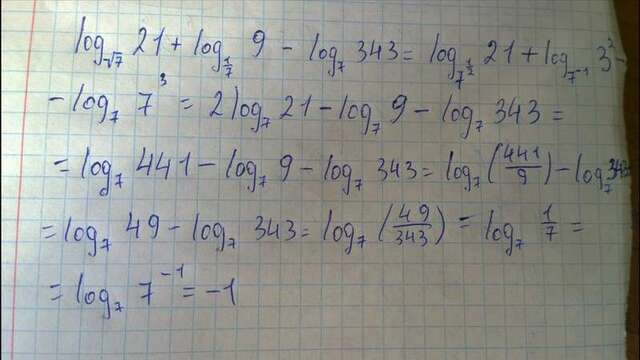 log_{√7} 21 + log_{1/7} 9 - log_7 343 = log_{7^{1/2}} 21 + log_{7^{-1}} 3^2 -
- log_7 7^3 = 2 log_7 21 - log_7 9 - log_7 343 =
= log_7 441 - log_7 9 - log_7 343 = log_7 (441/9) - log_7 343
= log_7 49 - log_7 343 = log_7 (49/343) = log_7 1/7 =
= log_7 7^{-1} = -1